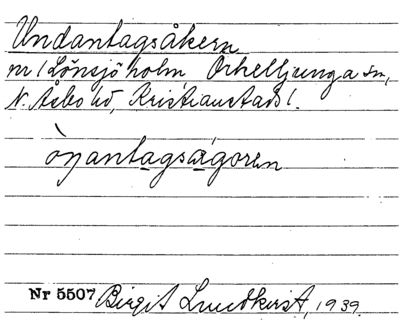 Undantagsåkern
nr 1 Lönsjöholm Örkelljunga sn,
N. Åsbo hd, Kristianstads l.
ò̀ŋantagsǡgoren
Nr 5507 Birgit Lundkvist, 1939.